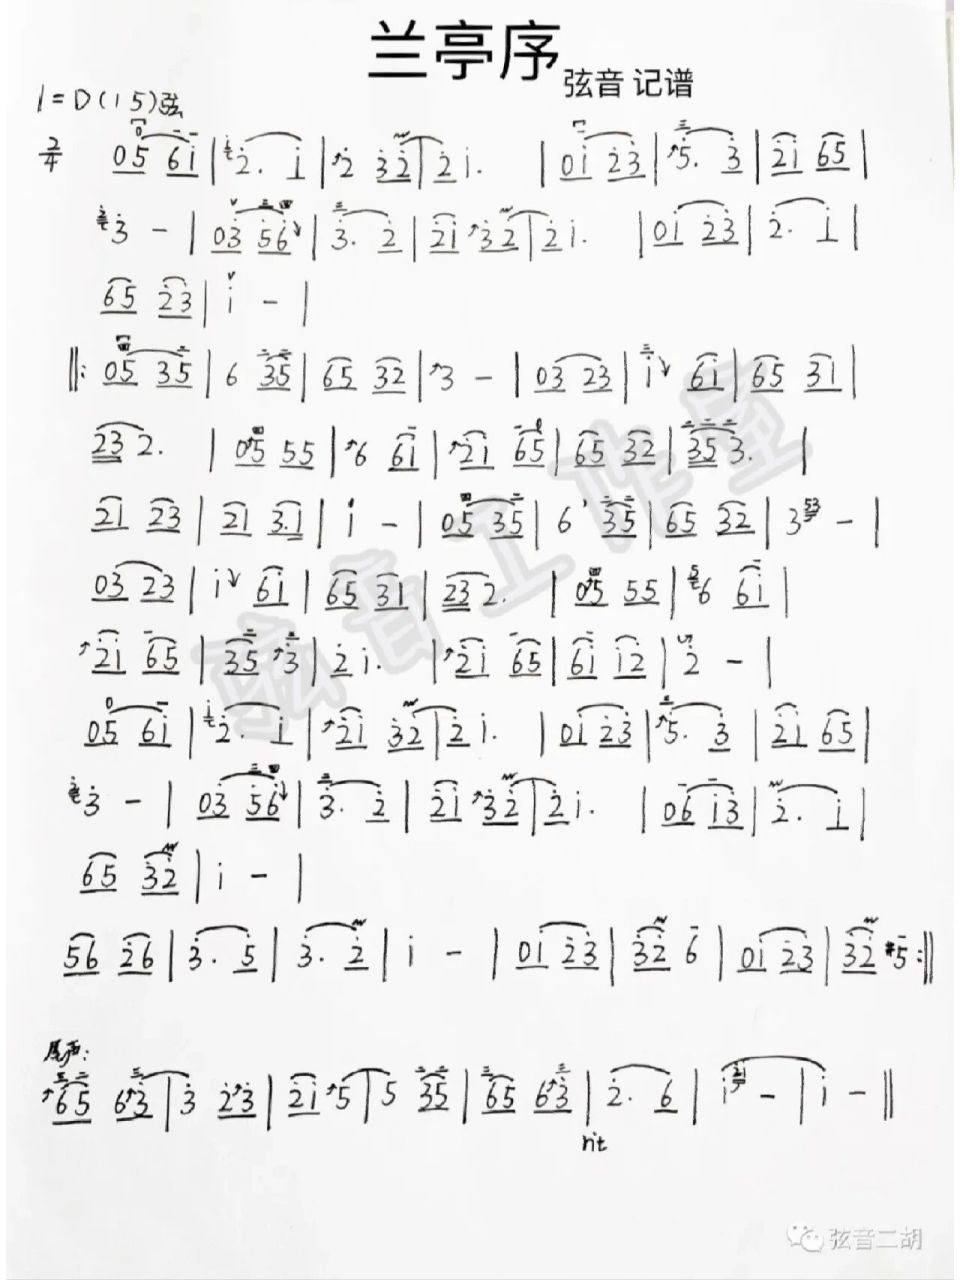 兰亭序
弦音 记谱
1=D(1 5)弦
2/4 05 6i | 2. i | 2 32 | 2i. | 0i 23 | 5. 3 | 2i 65 |
3 - | 03 56 | 3. 2 | 2i 32 | 2i. | 0i 23 | 2. i |
65 23 | i - |
‖: 05 35 | 6 35 | 65 32 | 3 - | 03 23 | i 6i | 65 31 |
23 2. | 05 55 | 6 6i | 2i 65 | 65 32 | 35 3. |
21 23 | 21 3.1 | i - | 05 35 | 6 35 | 65 32 | 3 53 - |
03 23 | i 6i | 65 31 | 23 2. | 05 55 | 6 6i |
2i 65 | 35 3 | 2 i. | 2i 65 | 6i i2 | 2 - |
05 6i | 2. i | 2i 32 | 2i. | 0i 23 | 5. 3 | 2i 65 |
3 - | 03 56 | 3. 2 | 2i 32 | 2i. | 06 i3 | 2. i |
65 32 | i - |
56 26 | 3. 5 | 3. 2 | i - | 0i 23 | 32 6 | 0i 23 | 32 #5 :‖
尾声:
65 63 | 3 23 | 2i 5 | 5 35 | 65 63 | 2. 6 | i - | i - ‖
rit
弦音工作室
弦音二胡